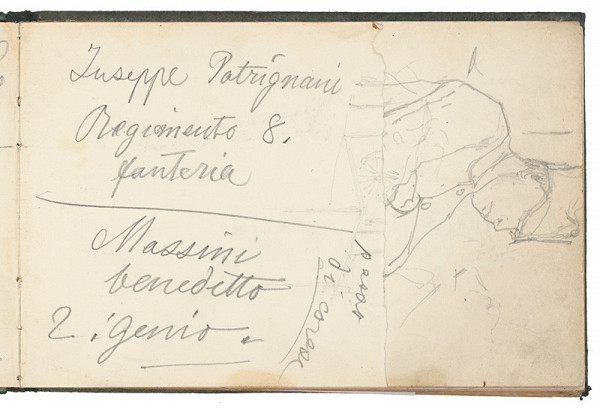 Iuseppe Patrignani
Regimento 8.
fanteria
Massini
benedetto
2. genio.
passo
di corsa